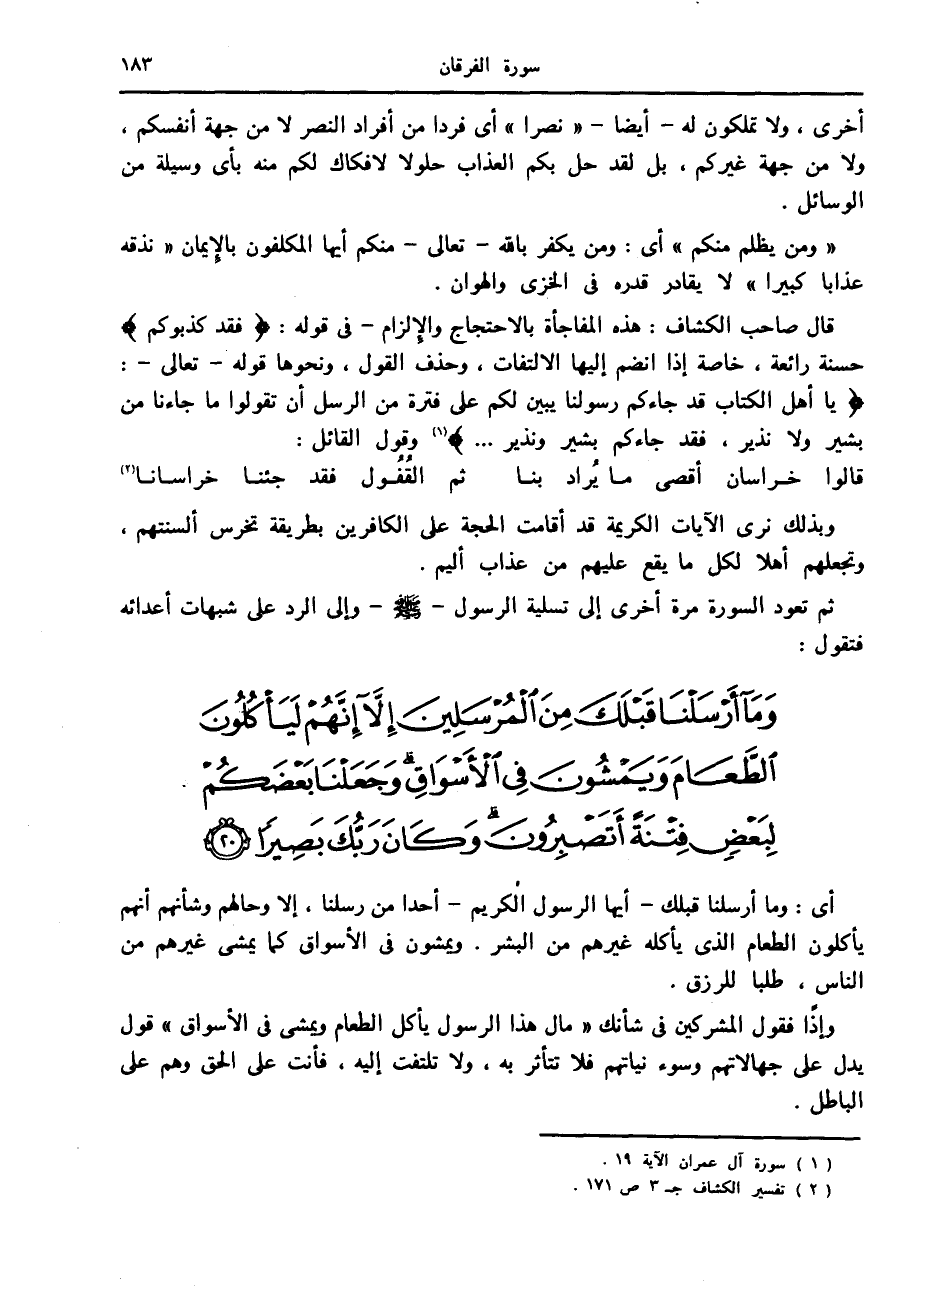 سورة الفرقان ١٨٣
أخرى ، ولا تملكون له – أيضا – « نصرا » أى فردا من أفراد النصر لا من جهة أنفسكم ،
ولا من جهة غيركم ، بل لقد حل بكم العذاب حلولا لافكاك لكم منه بأى وسيلة من
الوسائل .
« ومن يظلم منكم » أى : ومن يكفر بالله – تعالى – منكم أيها المكلفون بالإيمان « نذقه
عذابا كبيرا » لا يقادر قدره فى الخزى والهوان .
قال صاحب الكشاف : هذه المفاجأة بالاحتجاج والإلزام – فى قوله : ﴿ فقد كذبوكم ﴾
حسنة رائعة ، خاصة إذا انضم إليها الالتفات ، وحذف القول ، ونحوها قوله – تعالى – :
﴿ يا أهل الكتاب قد جاءكم رسولنا يبين لكم على فترة من الرسل أن تقولوا ما جاءنا من
بشير ولا نذير ، فقد جاءكم بشير ونذير ... ﴾(١) وقول القائل :
قالوا خـراسان أقصى مـا يُراد بنـا ثم القُفُـول فقد جئنـا خراسـانـا(٢)
وبذلك نرى الآيات الكريمة قد أقامت الحجة على الكافرين بطريقة تخرس ألسنتهم ،
وتجعلهم أهلا لكل ما يقع عليهم من عذاب أليم .
ثم تعود السورة مرة أخرى إلى تسلية الرسول – ﷺ – وإلى الرد على شبهات أعدائه
فتقول :
وَمَآ أَرْسَلْنَا قَبْلَكَ مِنَ ٱلْمُرْسَلِينَ إِلَّآ إِنَّهُمْ لَيَأْكُلُونَ
ٱلطَّعَامَ وَيَمْشُونَ فِى ٱلْأَسْوَاقِ ۗ وَجَعَلْنَا بَعْضَكُمْ
لِبَعْضٍ فِتْنَةً أَتَصْبِرُونَ ۗ وَكَانَ رَبُّكَ بَصِيرًا ﴿٢٠﴾
أى : وما أرسلنا قبلك – أيها الرسول الكريم – أحدا من رسلنا ، إلا وحالهم وشأنهم أنهم
يأكلون الطعام الذى يأكله غيرهم من البشر . ويمشون فى الأسواق كما يمشى غيرهم من
الناس ، طلبا للرزق .
وإذًا فقول المشركين فى شأنك « مال هذا الرسول يأكل الطعام ويمشى فى الأسواق » قول
يدل على جهالاتهم وسوء نياتهم فلا تتأثر به ، ولا تلتفت إليه ، فأنت على الحق وهم على
الباطل .
( ١ ) سورة آل عمران الآية ١٩ .
( ٢ ) تفسير الكشاف جـ ٣ ص ١٧١ .